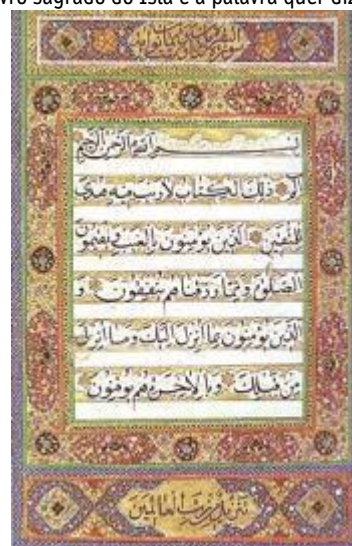 vro sagrado do Islã e a palavra quer diz
بسم الله الرحمن الرحيم
الم ذلك الكتاب لا ريب فيه هدى
للمتقين الذين يؤمنون بالغيب ويقيمون
الصلوة ومما رزقناهم ينفقون و
الذين يؤمنون بما انزل اليك وما انزل
من قبلك وبالاخرة هم يوقنون
تنزيل من رب العالمين